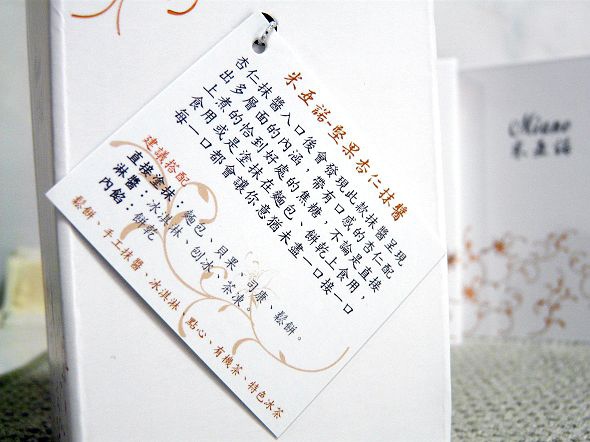 米亞諾-堅果杏仁抹醬
杏仁抹醬入口後會發現此款抹醬呈現
出多層面的內涵，帶有口感的杏仁配
上煮的恰到好處的焦糖，不論是直接
食用或是塗抹在麵包、餅乾上食用，
每一口都會讓你意猶未盡一口接一口
建議搭配
直接塗抹：麵包、貝果、司康、鬆餅。
淋醬：冰淇淋、刨冰、茶凍。
內餡：餅乾
鬆餅、手工抹醬、冰淇淋 點心、有機茶、特色冰茶
Miano
米亞諾